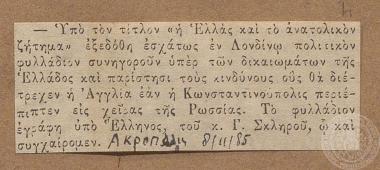 — Ὑπὸ τὸν τίτλον «ἡ Ἑλλὰς καὶ τὸ ἀνατολικὸν
ζήτημα» ἐξεδόθη ἐσχάτως ἐν Λονδίνῳ πολιτικὸν
φυλλάδιον συνηγοροῦν ὑπὲρ τῶν δικαιωμάτων τῆς
Ἑλλάδος καὶ παρίστησι τοὺς κινδύνους οὓς θὰ διέ-
τρεχεν ἡ Ἀγγλία ἐὰν ἡ Κωνσταντινούπολις περιέ-
πιπτεν εἰς χεῖρας τῆς Ρωσσίας. Τὸ φυλλάδιον
ἐγράφη ὑπὸ Ἕλληνος, τοῦ κ. Γ. Σκληροῦ, ᾧ καὶ
συγχαίρομεν. Ακροπολις 8/11/85